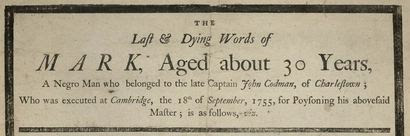 THE
Laſt & Dying Words of
MARK, Aged about 30 Years,
A Negro Man who belonged to the late Captain John Codman, of Charleſtown ;
Who was executed at Cambridge, the 18th of September, 1755, for Poyſoning his aboveſaid
Maſter ; is as follows, viz.